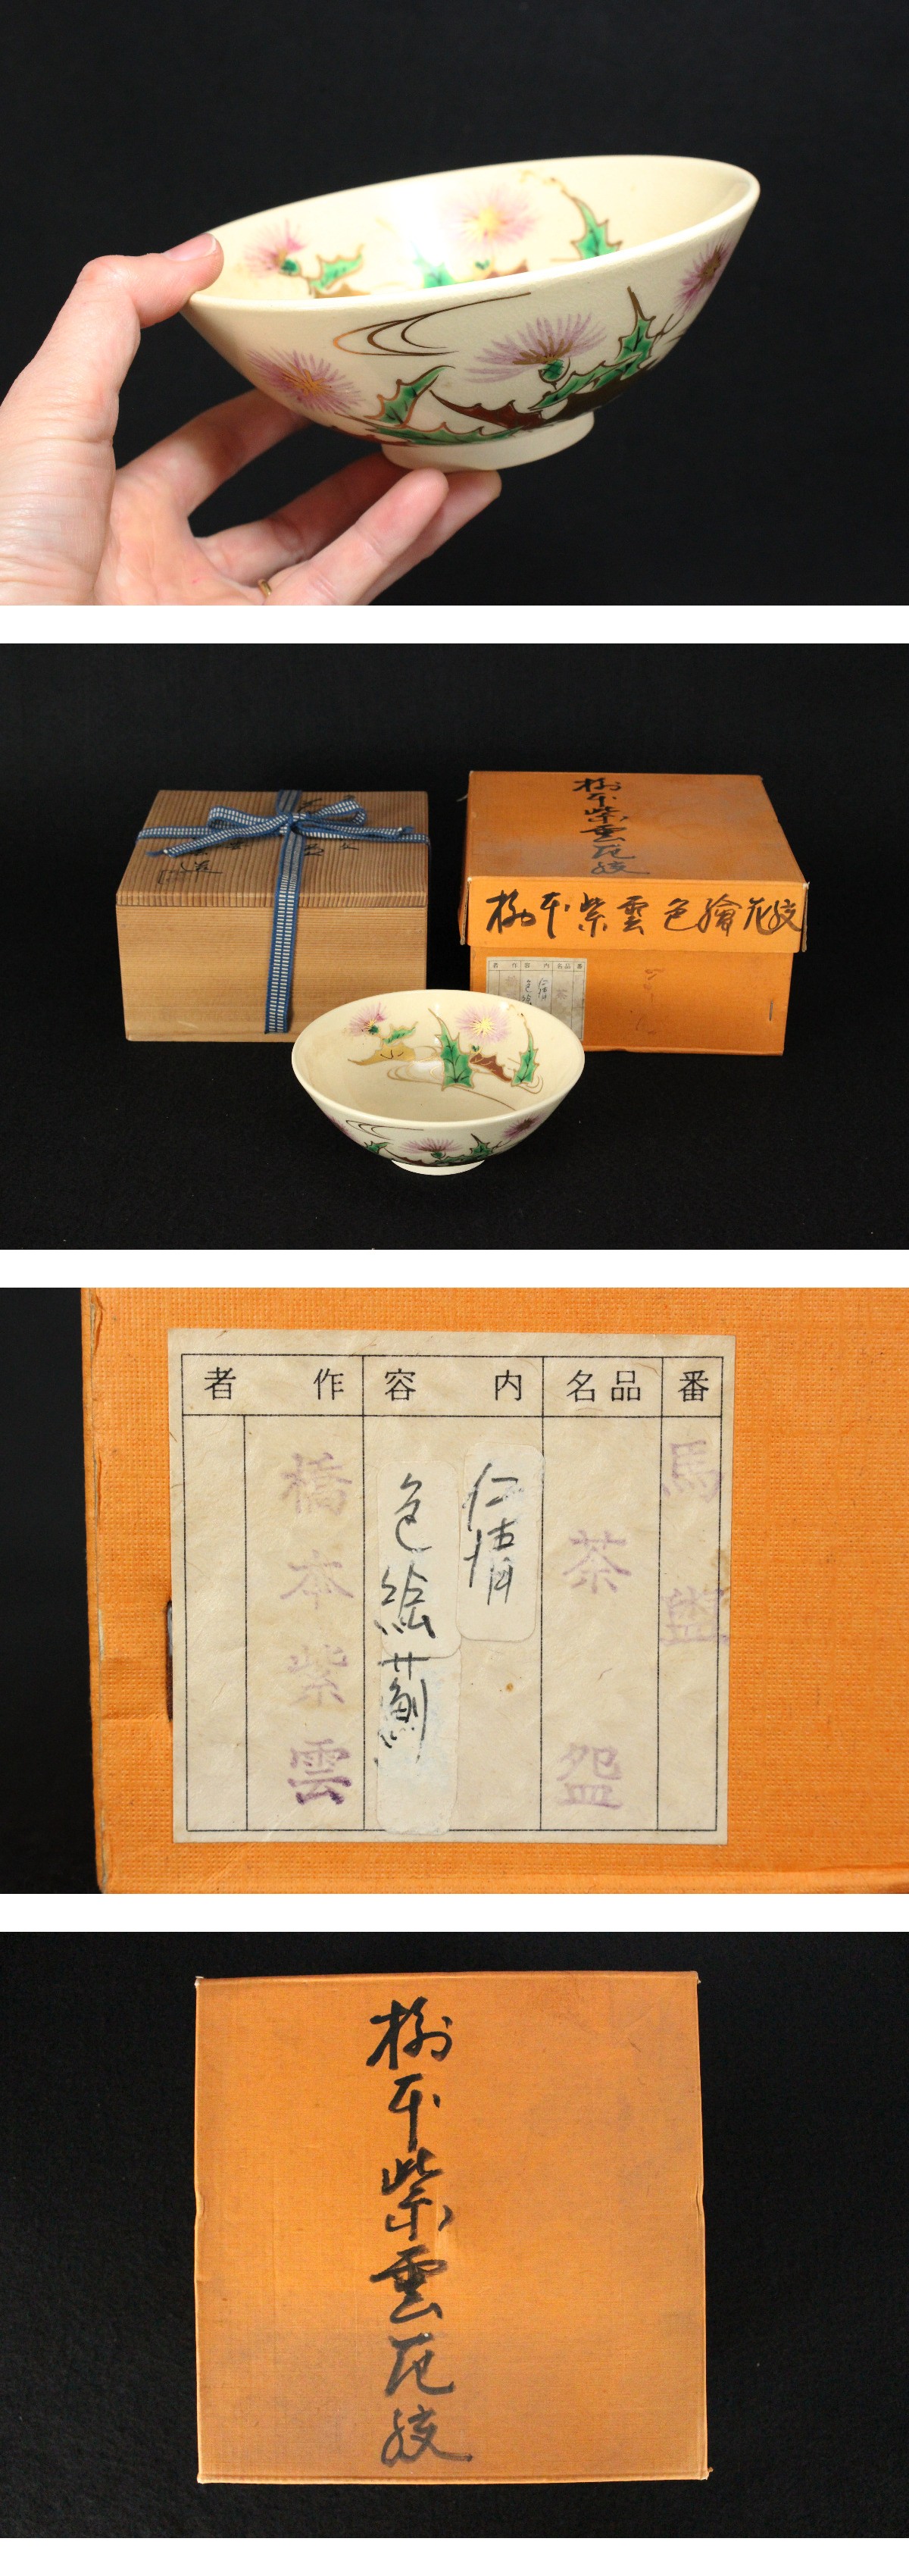 橋本紫雲花紋
橋本紫雲色繪花紋
番 品名 内容 作者
馬盥
茶盌
仁清
色絵薊
橋本紫雲
橋本紫雲花紋